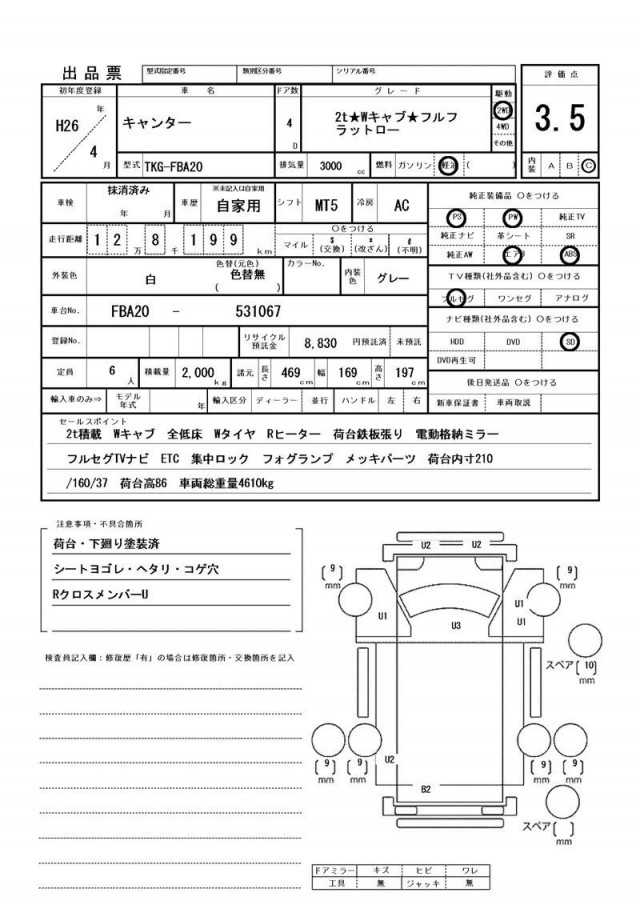 出品票 型式指定番号 類別区分番号 シリアル番号
初年度登録 車名 ドア数 グレード 駆動 評価点
H26 年 4 月 キャンター 4 D 2t★Wキャブ★フルフラットロー 2WD 4WD その他 3.5
型式 TKG-FBA20 排気量 3000 cc 燃料 ガソリン 軽油 ( ) 内装 A B C
車検 抹消済み 年 月 車歴 ※未記入は自家用 自家用 シフト MT5 冷房 AC
走行距離 12万8千199km 〇をつける マイル $(交換) *(改ざん) #(不明)
外装色 白 色替(元色) 色替無 ( ) カラーNo. 内装色 グレー
車台No. FBA20 - 531067
登録No. リサイクル預託金 8,830 円預託済 未預託
定員 6 人 積載量 2,000 kg 諸元 長さ 469 cm 幅 169 cm 高さ 197 cm
輸入車のみ⇒ モデル年式 年 輸入区分 ディーラー 並行 ハンドル 左 右
純正装備品 〇をつける
PS PW 純正TV
純正ナビ 革シート SR
純正AW エアB ABS
TV種類(社外品含む) 〇をつける
フルセグ ワンセグ アナログ
ナビ種類(社外品含む) 〇をつける
HDD DVD SD
DVD再生可
後日発送品 〇をつける
新車保証書 車両取説
セールスポイント
2t積載 Wキャブ 全低床 Wタイヤ Rヒーター 荷台鉄板張り 電動格納ミラー
フルセグTVナビ ETC 集中ロック フォグランプ メッキパーツ 荷台内寸210
/160/37 荷台高86 車両総重量4610kg
注意事項・不具合箇所
荷台・下廻り塗装済
シートヨゴレ・ヘタリ・コゲ穴
RクロスメンバーU
検査員記入欄：修復歴「有」の場合は修復箇所・交換箇所を記入
U2 U2
(9) mm (9) mm
U1 U3 U1 U1
スペア(10) mm
U2
(9) mm (9) mm (9) mm (9) mm
B2
スペア( ) mm
ドアミラー キズ ヒビ ワレ
工具 無 ジャッキ 無